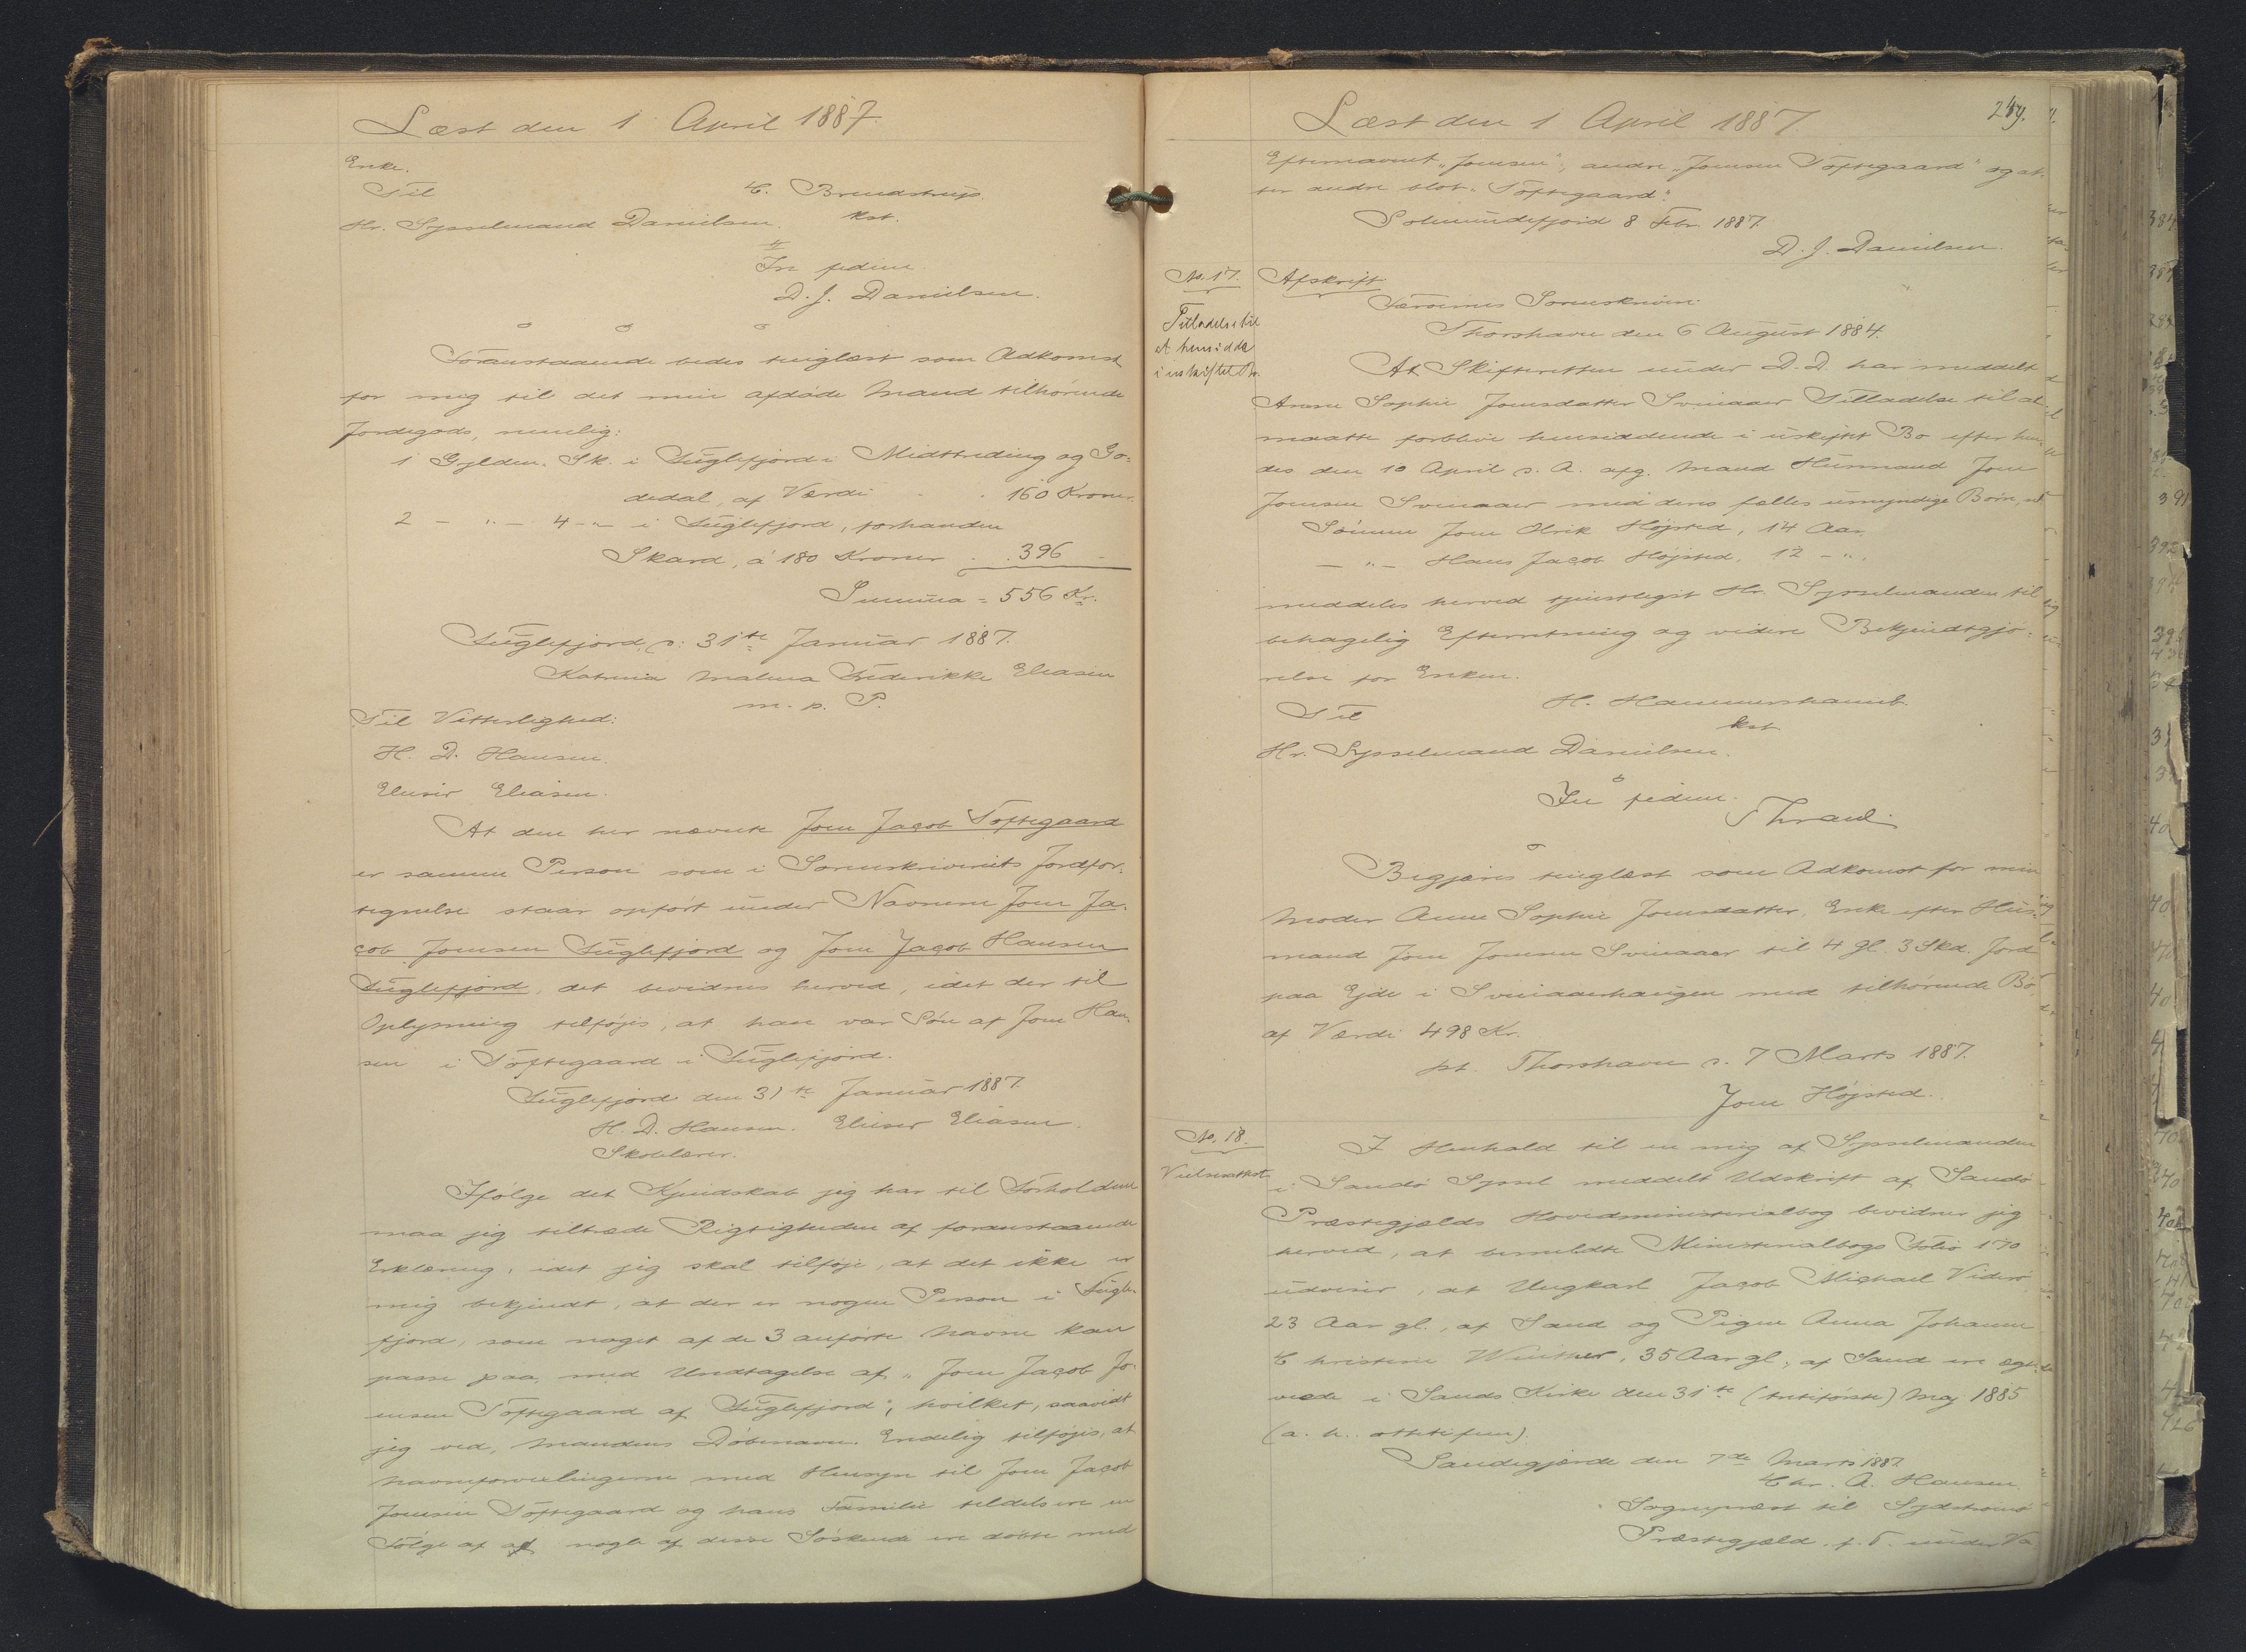 Læst den 1 April 1887.
Enke.
Til C. Brendstrup
Hr. Sysselmand Danielsen. kst.
In fidem
D. J. Danielsen.
Foranstaaende bedes tinglæst som Adkomst
for mig til det min afdøde Mand tilhørende
Jordegods, nemlig:
1 Gylden. Sk. i Fuglefjord i Midttreding og Go-
dedal, af Værdi . . 160 Kroner.
2 - " - 4 - " - i Fuglefjord, forhanden
Skard, á 180 Kroner . . 396 -
Summa = 556 Kr.
Fuglefjord, p: 31te Januar 1887.
Katrina Malena Frederikke Eliasen
m. p. P.
Til Vitterlighed:
H. D. Hansen.
Elieser Eliasen.
At den her nævnte Joen Jacob Toftegaard
er samme Person som i Sorenskriveriets Jordfor-
tegnelse staar opført under Navnene Joen Ja-
cob Joensen Fuglefjord og Joen Jacob Hansen
Fuglefjord, det bevidnes herved, idet der til
Oplysning tilføjes, at han var Søn af Joen Han-
sen i Toftegaard i Fuglefjord.
Fuglefjord den 31te Januar 1887.
H. D. Hansen. Elieser Eliasen.
Skolelærer.
Ifølge det Kjendskab jeg har til Forholdene
maa jeg tiltræde Rigtigheden af foranstaaende
Erklæring, idet jeg skal tilføje, at det ikke er
mig bekjendt, at der er nogen Person i Fugle-
fjord, som noget af de 3 anførte Navne kan
passe paa, med Undtagelse af "Joen Jacob Jo-
ensen Toftegaard af Fuglefjord", hvilket, saavidt
jeg ved, Mandens Døbenavn. Endelig tilføjes, at
Navneforvexlingerne med Hensyn til Joen Jacob
Joensen Toftegaard og hans Familie tildels ere en
Følge af at nogle af disse Søskende ere døbte med
Læst den 1 April 1887.
249.
Efternavnet "Joensen", andre "Joensen Toftegaard" og at-
ter andre blot "Toftegaard".
Solmundefjord 8 Febr. 1887.
D. J. Danielsen.
No. 17. Afskrift.
Tilladelse til
at hensidde
i uskiftet Bo.
Færøernes Sorenskriveri.
Thorshavn den 6 August 1884.
At Skifteretten under D. D. har meddelt
Anne Sophie Joensdatter Svinaaer Tilladelse til at
maatte forblive hensiddende i uskiftet Bo efter hen-
des den 10 April s. A. afg. Mand Huusmand Joen
Joensen Svinaaer med deres fælles umyndige Børn,
Sønnene Joen Olrik Højsted, 14 Aar
- " - Hans Jacob Højsted, 12 - " .
meddeles herved tjenstligst Hr. Sysselmanden til
behagelig Efterretning og videre Bekjendtgjø-
relse for Enken.
Til H. Hammershaimb
kst
Hr. Sysselmand Danielsen.
In fidem.
Thrane
Begjæres tinglæst som Adkomst for min
Moder Anne Sophie Joensdatter, Enke efter Huus-
mand Joen Joensen Svinaaer til 4 gl. 3 Skd. Jord
paa Ejde i Svinaaerhaugen med tilhørende Bø
af Værdi 498 Kr.
pt. Thorshavn d. 7 Marts 1887.
Joen Højsted.
No. 18.
Vielsesattest
I Henhold til en mig af Sysselmanden
i Sandø Syssel meddelt Udskrift af Sandø
Præstegjælds Hovedministerialbog bevidner jeg
herved, at bemeldte Ministerialbogs Folio 170
udviser, at Ungkarl Jacob Michael Viderø
23 Aar gl., af Sand og Pigen Anna Johanne
Christine Winther, 35 Aar gl., af Sand ere ægte-
viede i Sands Kirke den 31te (entiførste) Maj 1885
(a. h. ottetifem).
Sandegjerde den 7de Marts 1887.
Chr. A. Hansen
Sognepræst til Sydstrømø
Præstegjæld, f. T. under Va-